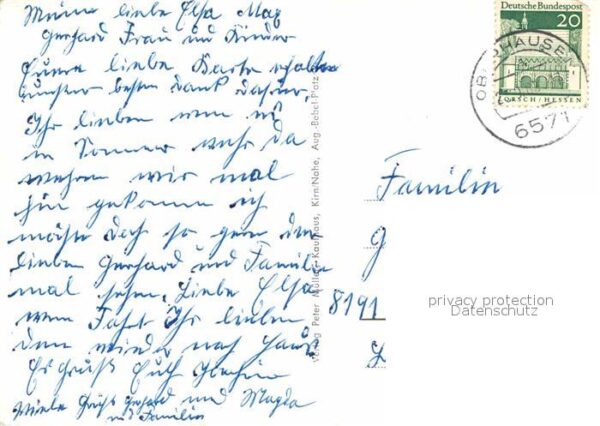 Meine liebe Elsa Max
Gerhard Frau und Kinder
Euere liebe Karte erhalten
besten Dank dafür.
Ihr lieben wen
im Sommer wehr da
wehren wir mal
hin gekomme ich
möchte doch so gern den
lieben Gerhard und Familie
mal sehen. Liebe Elsa
wen Fahrt Ihr lieben
den wieder nach Hause
Es grüßt Euch
Viele Grüße Gerhard und Magda
und Familie
Deutsche Bundespost
20
LORSCH/HESSEN
OBERHAUSEN
6571
Familie
G
8191
Verlag Peter Müller, Kaufhaus, Kirn/Nahe, Aug.-Bebel-Platz
privacy protection
Datenschutz